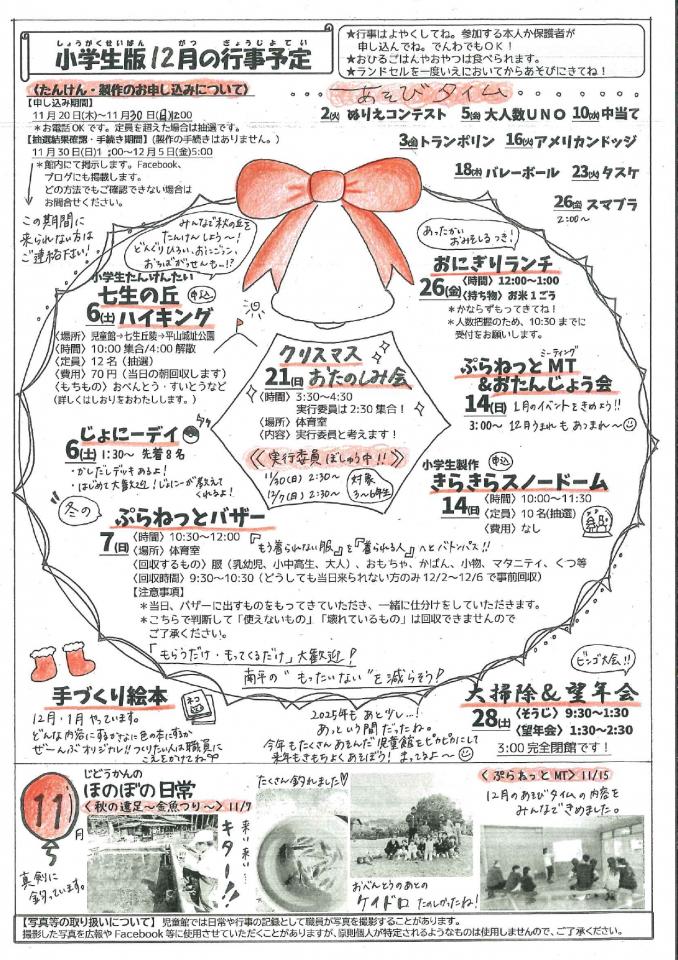 しょうがくせいばん がつ ぎょうじよてい
小学生版12月の行事予定
★行事はよやくしてね。参加する本人か保護者が
申し込んでね。でんわでもOK!
★おひるごはんやおやつは食べられます。
★ランドセルを一度いえにおいてからあそびにきてね!
〈たんけん・製作のお申し込みについて〉
【申し込み期間】
11月20日(木)~11月30日(日)12:00
*お電話OKです。定員を超えた場合は抽選です。
【抽選結果確認・手続き期間】(製作の手続きはありません。)
11月30日(日)1:00~12月5日(金)5:00
*館内にて掲示します。Facebook、
ブログにも掲載します。
どの方法でもご確認できない場合は
お問合せください。
この期間に
来られない方は
ご連絡下さい!
あそびタイム
2(火) ぬりえコンテスト 5(金) 大人数UNO 10(水) 中当て
3(水) トランポリン 16(火) アメリカンドッジ
18(木) バレーボール 23(火) タスケ
26(金) スマブラ
2:00~
みんなで秋の丘を
たんけんしよう~!
どんぐりひろい、おにごっこ、
おちばがっせんもー!?
小学生たんけんたい
七生の丘 申込
6(土) ハイキング
〈場所〉児童館→七生丘陵→平山城址公園
〈時間〉10:00集合/4:00解散
〈定員〉12名(抽選)
〈費用〉70円(当日の朝回収します)
〈もちもの〉おべんとう・すいとうなど
(詳しくはしおりをおわたしします。)
あったかい
おみそしるつき!
おにぎりランチ
26(金) 〈時間〉12:00~1:00
〈持ち物〉お米1ごう
*かならずもってきてね!
*人数把握のため、10:30までに
受付をお願いします。
クリスマス
21(日) おたのしみ会
〈時間〉3:30~4:30
実行委員は2:30集合!
〈場所〉体育室
〈内容〉実行委員と考えます!
《実行委員ぼしゅう中!!》
11/30(日) 2:30~
12/7(日) 2:30~
対象
3~6年生
ミーティング
ぷらねっとMT
&おたんじょう会
14(日) 1月のイベントをきめよう!!
3:00~ 12月うまれもあつまれ~
じょにーデイ
6(土) 1:30~ 先着8名
・かしだしデッキあるよ!
・はじめて大歓迎!じょにーが教えて
くれるよ!
小学生製作 申込
きらきらスノードーム
14(日) 〈時間〉10:00~11:30
〈定員〉10名(抽選)
〈費用〉なし
冬の
ぷらねっとバザー
7(日) 〈時間〉10:30~12:00
〈場所〉体育室
『もう着られない服』を『着られる人』へとバトンパス!!
〈回収するもの〉服(乳幼児、小中高生、大人)、おもちゃ、かばん、小物、マタニティ、くつ等
〈回収時間〉9:30~10:30(どうしても当日来られない方のみ12/2~12/6で事前回収)
【注意事項】
*当日、バザーに出すものをもってきていただき、一緒に仕分けをしていただきます。
*こちらで判断して「使えないもの」「壊れているもの」は回収できませんので
ご了承ください。
「もらうだけ・もってくるだけ」大歓迎!
南平の"もったいない"を減らそう!
手づくり絵本
ネコ
12月・1月やっています。
どんな内容にするかさらに色の本にするか
ぜーんぶオリジナル!!つくりたい人は職員に
こえをかけてね
2025年もあと少し…!
あっという間だったね。
今年もたくさんあそんだ児童館をピカピカにして
来年もきもちよくあそぼう!まってるよ~
ビンゴ大会!!
大掃除&望年会
28(土) 〈そうじ〉9:30~1:30
〈望年会〉1:30~2:30
3:00完全閉館です!
11月
じどうかんの
ほのぼの日常
〈秋の遠足~金魚つり~〉11/7
真剣に
釣っています。
来い来い…
キター!!
たくさん釣れました♡
おべんとうのあとの
ケイドロ たのしかったね!
〈ぷらねっとMT〉11/15
12月のあそびタイムの内容を
みんなできめました。
【写真等の取り扱いについて】児童館では日常や行事の記録として職員が写真を撮影することがあります。
撮影した写真を広報やFacebook等に使用させていただくことがありますが、原則個人が特定されるようなものは使用しませんので、ご了承ください。